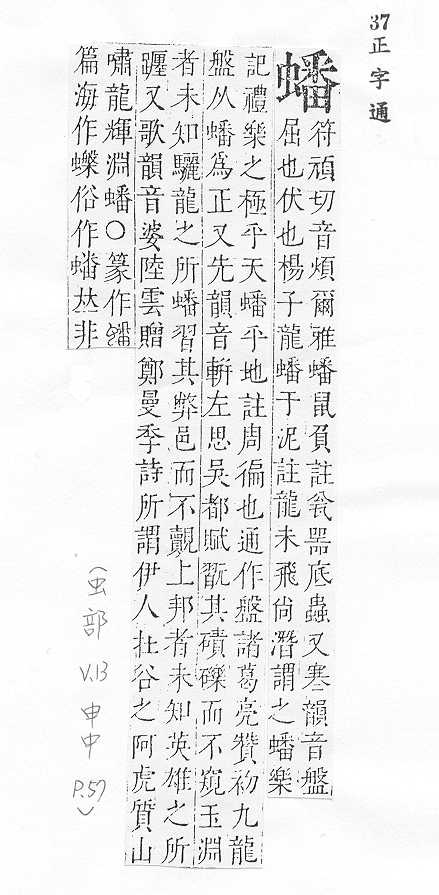 37正字通
蟠
符頑切音煩爾雅蟠鼠負註瓮器底蟲又寒韻音盤
屈也伏也楊子龍蟠于泥註龍未飛尙潛謂之蟠樂
記禮樂之極乎天蟠乎地註周徧也通作盤諸葛亮贊初九龍
盤从蟠爲正又先韻音軿左思吳都賦翫其磧礫而不窺玉淵
者未知驪龍之所蟠習其弊邑而不覿上邦者未知英雄之所
躔又歌韻音婆陸雲贈鄭曼季詩所謂伊人在谷之阿虎質山
嘯龍輝淵蟠○篆作
篇海作蠜俗作𧔞𠀤非
(虫部 V.13 申中 P.57)